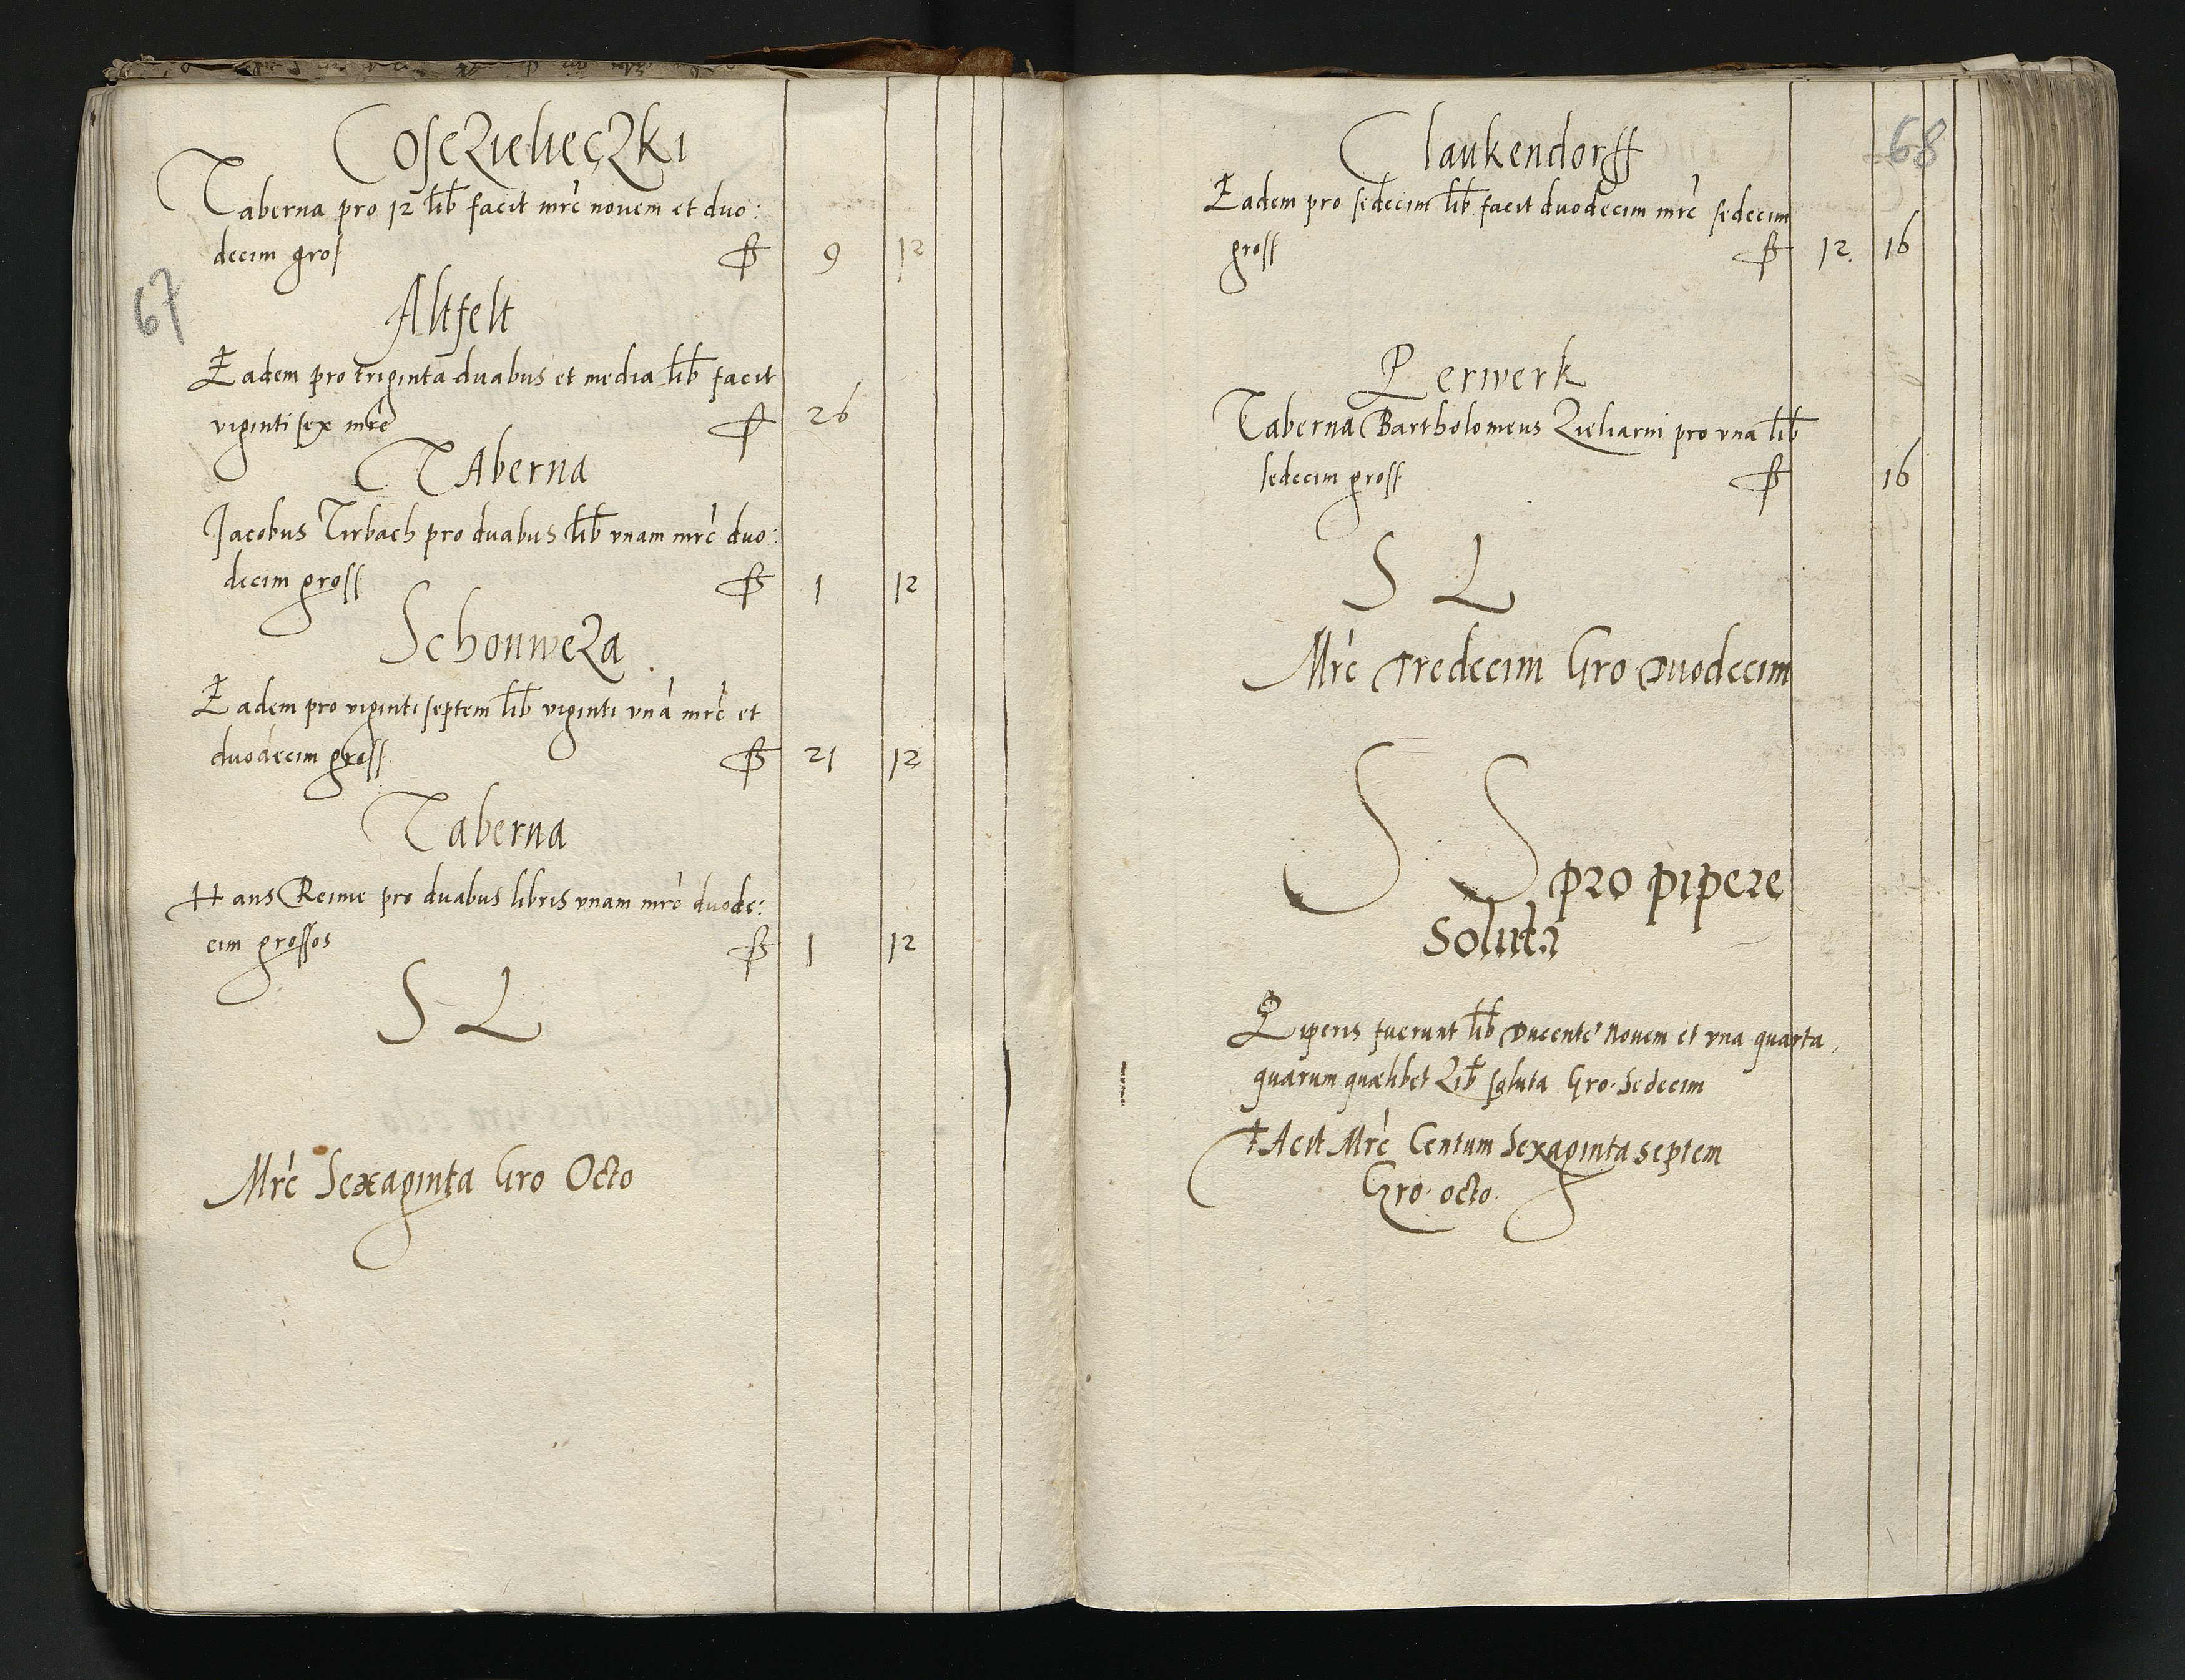 Cosczielieczki
Taberna pro 12 lib facit mrc novem et duo:
decim gros ꝭ 9 12
67
Altfelt
Eadem pro triginta duabus et media lib facit
viginti sex mrc 26
TAberna
Jacobus Tirbach pro duabus lib vnam mrc duo:
decim gross 1 12
Schonweza
Eadem pro viginti septem lib viginti vna mrc et
duodecim gross 21 12
Taberna
Hans Reime pro duabus libris vnam mrc duode:
cim grossos 1 12
S L
Mrc Sexaginta Gro Octo
68
Claukendorff
Eadem pro sedecim lib facit duodecim mrc sedecim
gross 12. 16
Perwerk
Taberna Bartholomeus Zieliarni pro vna lib
sedecim gross 16
S L
Mrc Tredecim Gro Duodecim
S S pro pipere
Soluta
Piperis fuerunt lib Ducente Novem et vna quarta,
quarum quaelibet Lib soluta Gro. Sedecim
FAcit Mrc Centum Sexaginta septem
Gro. octo.